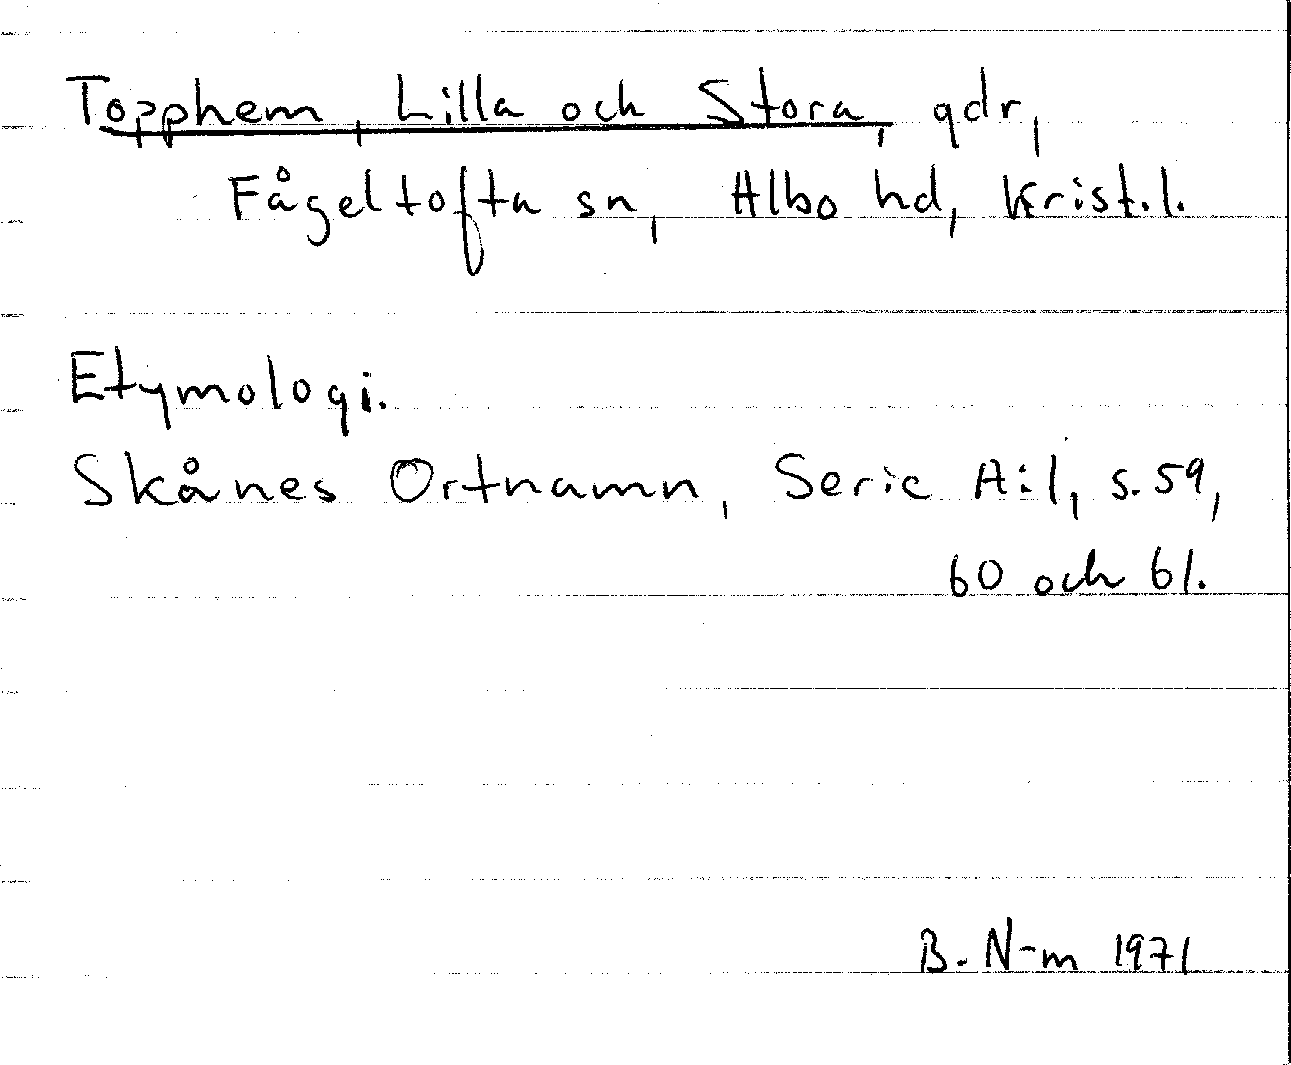 Topphem, Lilla och Stora, gdr,
Fågeltofta sn, Albo hd, Krist.l.
Etymologi.
Skånes Ortnamn, Serie A:1, s. 59,
60 och 61.
B. N-m 1971